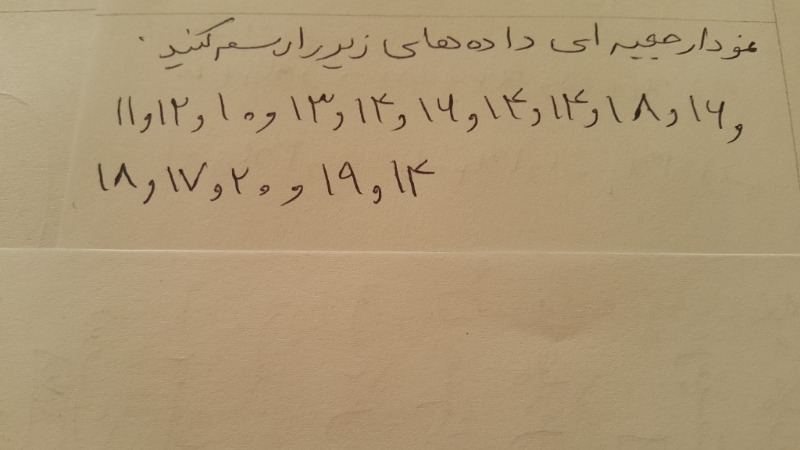 نمودار جعبه ای داده های زیر را رسم کنید.
۱۱ و ۱۲ و ۱۰ و ۱۳ و ۱۴ و ۱۶ و ۱۴ و ۱۴ و ۱۸ و ۱۶ و
۱۸ و ۱۷ و ۲۰ و ۱۹ و ۱۴